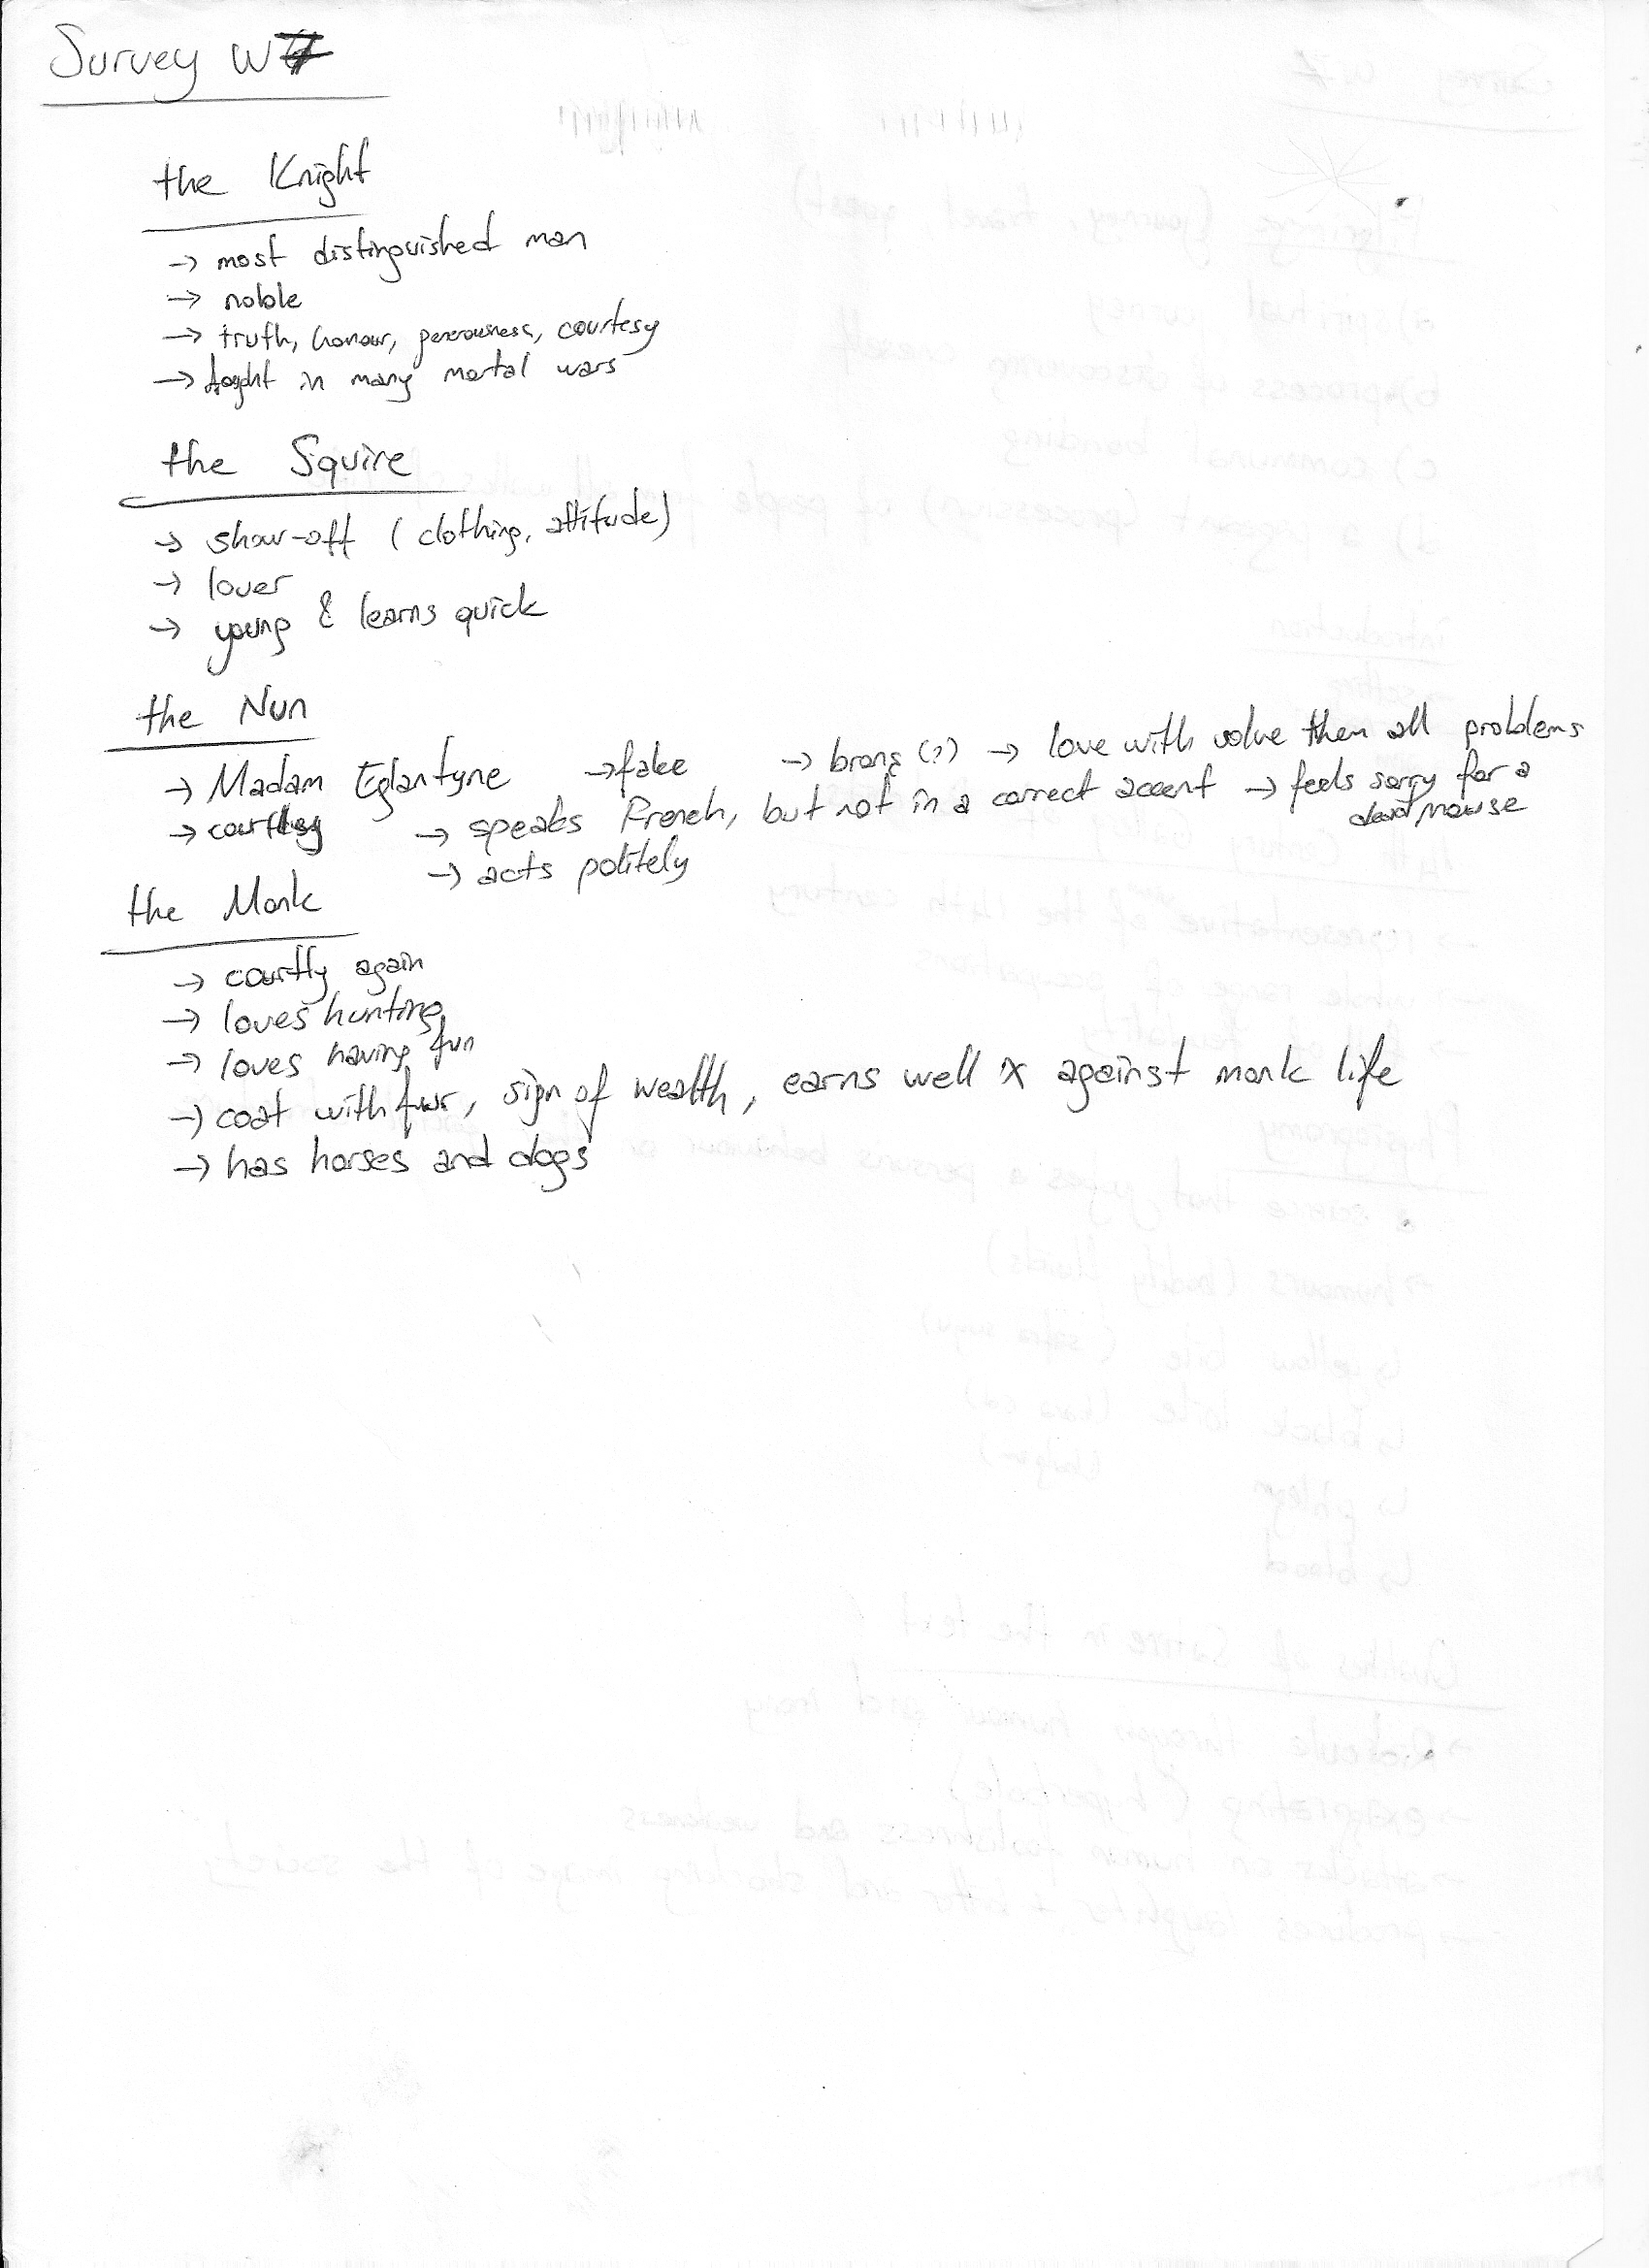 Survey W7
the Knight
→ most distinguished man
→ noble
→ truth, honour, generousness, courtesy
→ fought in many mortal wars
the Squire
→ show-off (clothing, attitude)
→ lover
→ young & learns quick
the Nun
→ Madam Eglantyne →fake → brong (?) → love with volve then all problems
→ courtesy → speaks French, but not in a correct accent → feels sorry for a
dead mouse
→ acts politely
the Monk
→ courtly again
→ loves hunting
→ loves having fun
→ coat with fur, sign of wealth, earns well x against monk life
→ has horses and dogs